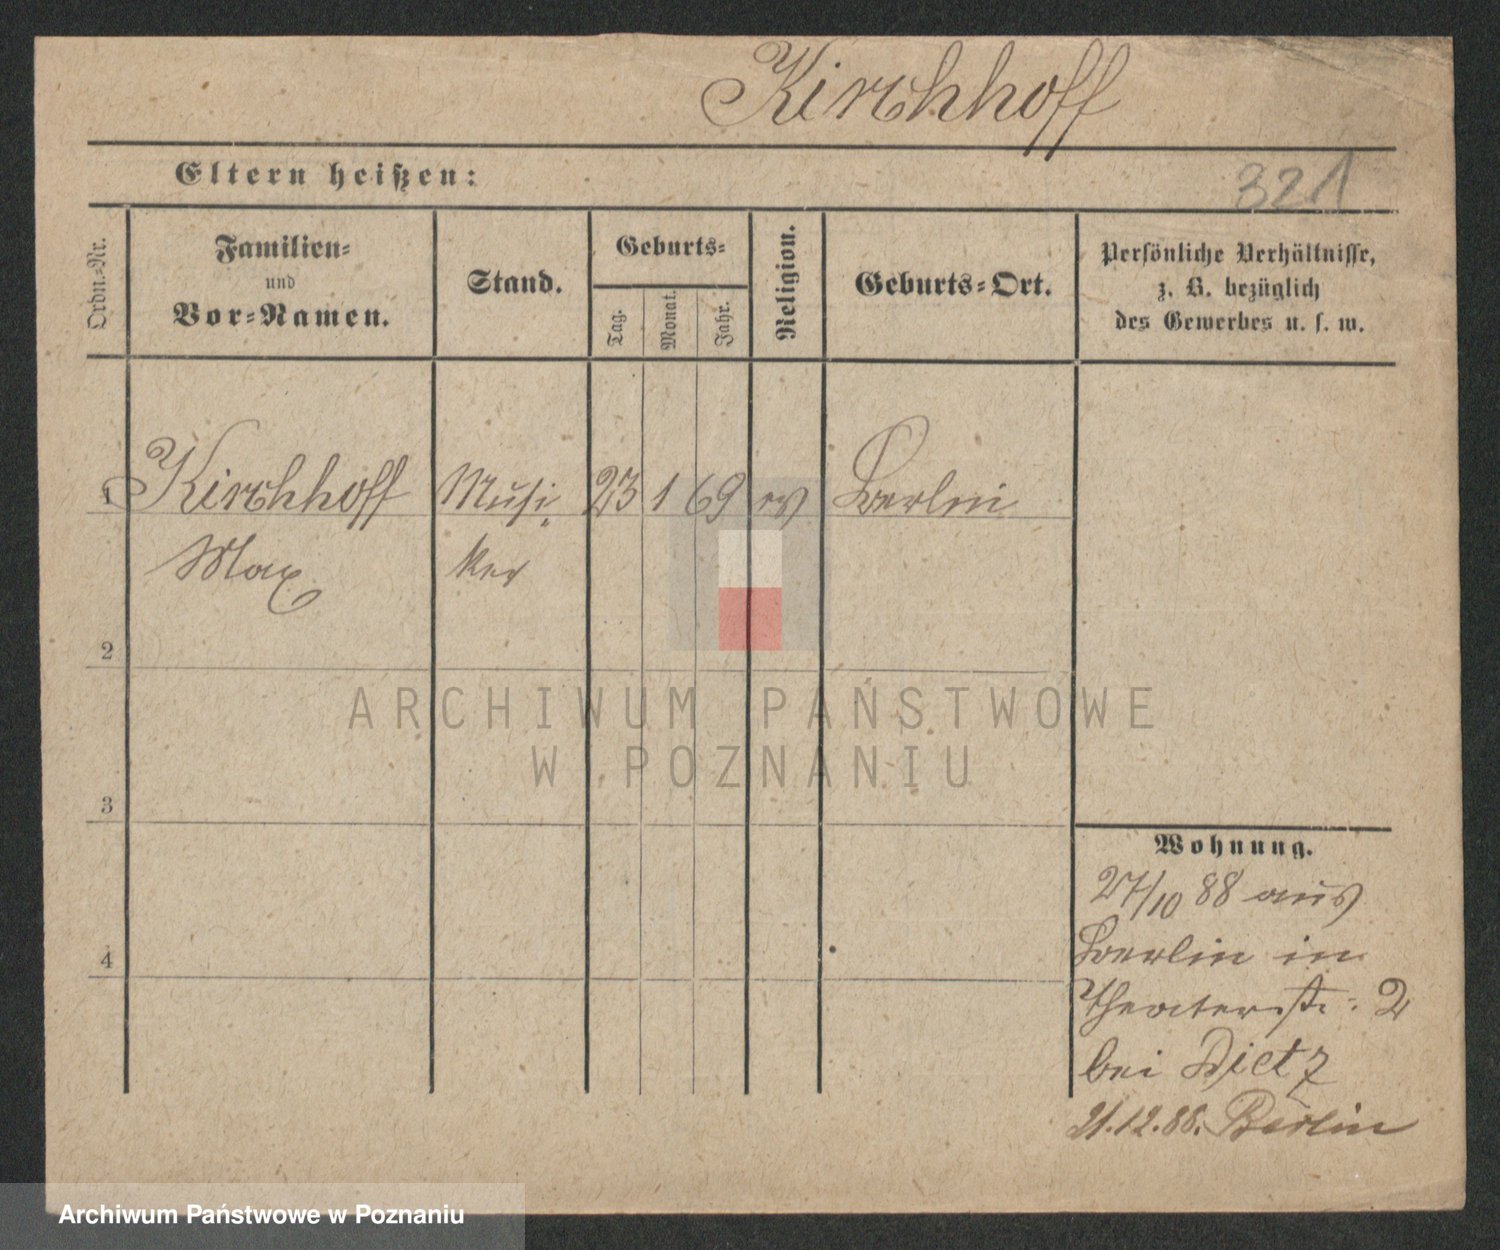 Kirchhoff
Eltern heißen:
321
Ordn.-Nr.
Familien-
und
Vor-Namen.
Stand.
Geburts-
Tag.
Monat.
Jahr.
Religion.
Geburts-Ort.
Persönliche Verhältnisse,
z. B. bezüglich
des Gewerbes u. s. w.
1 Kirchhoff Musi 23 1 69 ev Berlin
Max ker
2
3
4
ARCHIWUM PAŃSTWOWE
W POZNANIU
Wohnung.
27/10 88 aus
Berlin in
Theaterstr. 2
bei Dietz
21.12.88. Berlin
Archiwum Państwowe w Poznaniu